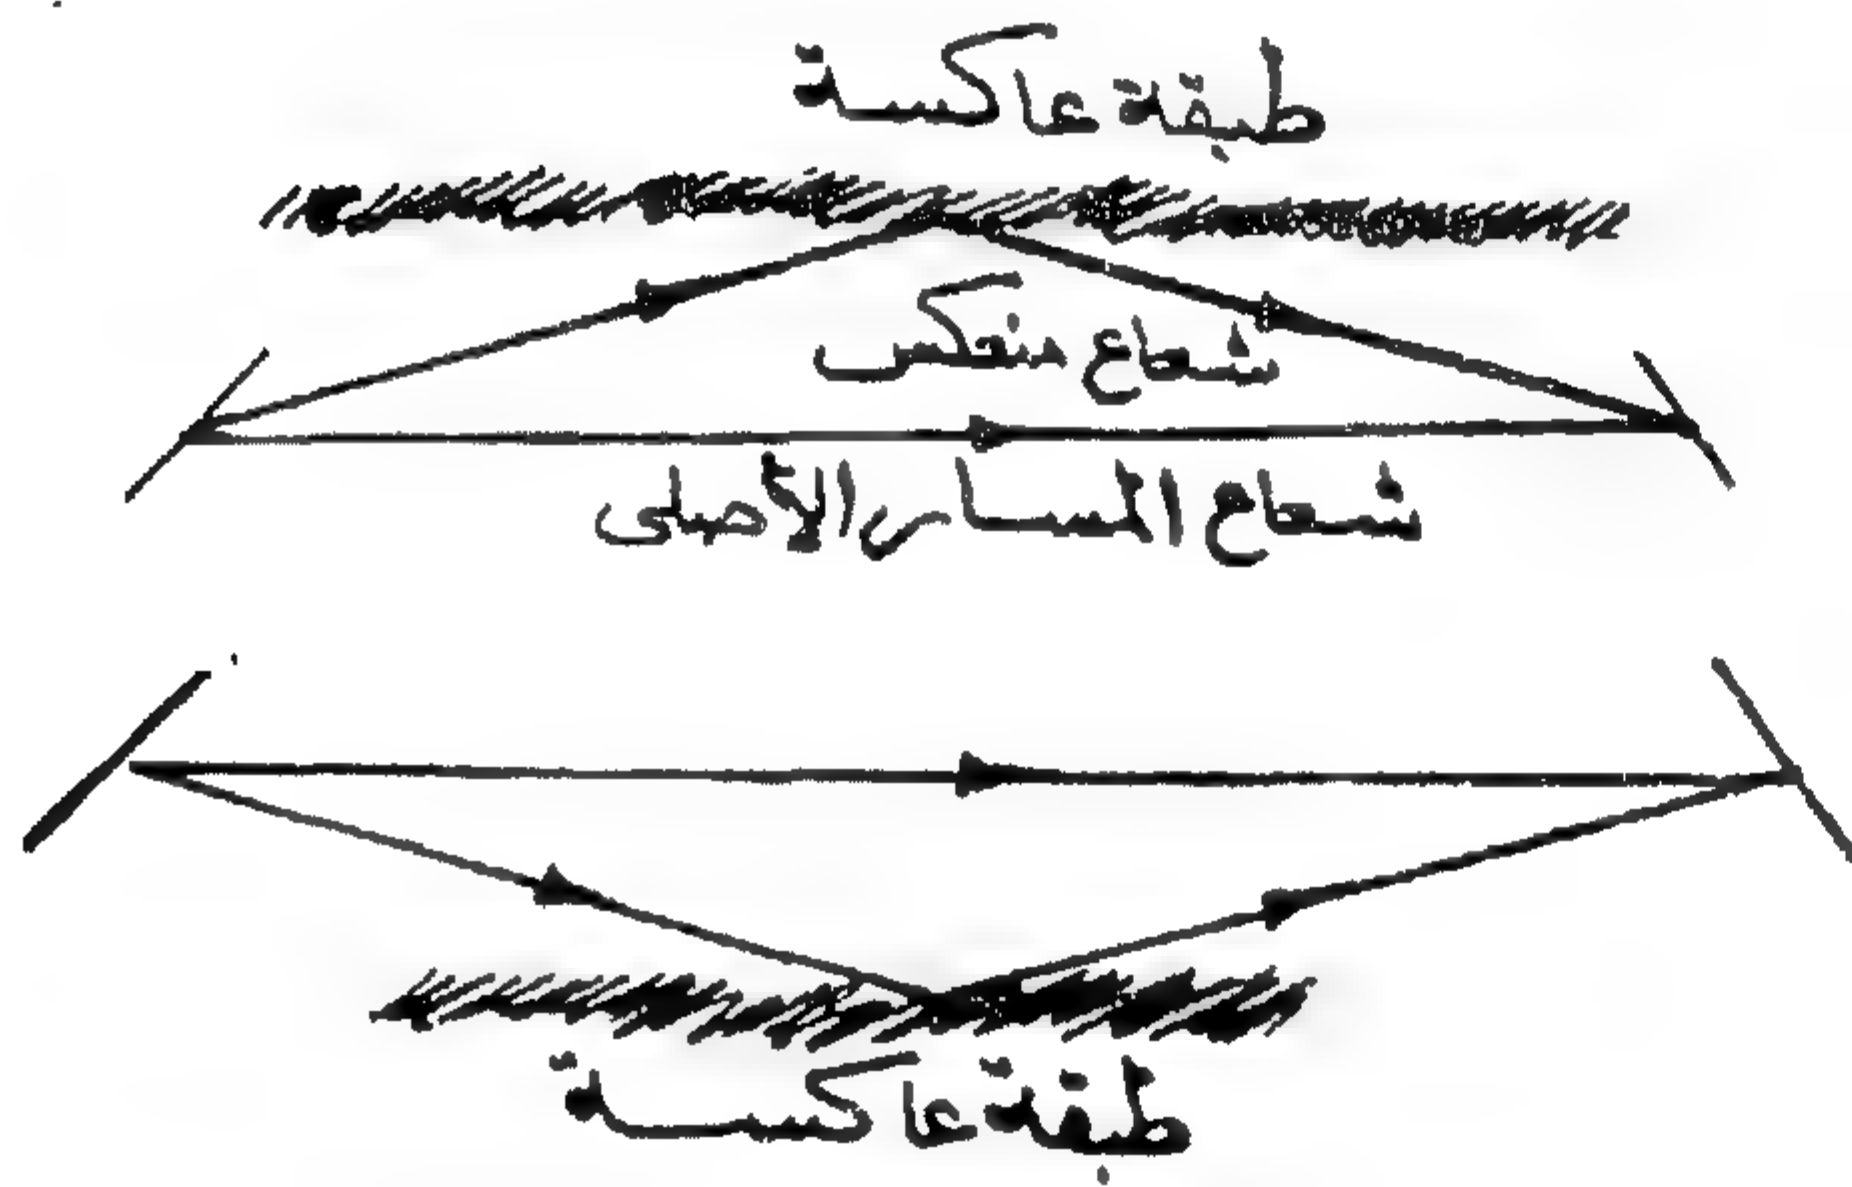 طبقة عاكسة
شعاع منعكس
شعاع المسار الأصلى
طبقة عاكسة